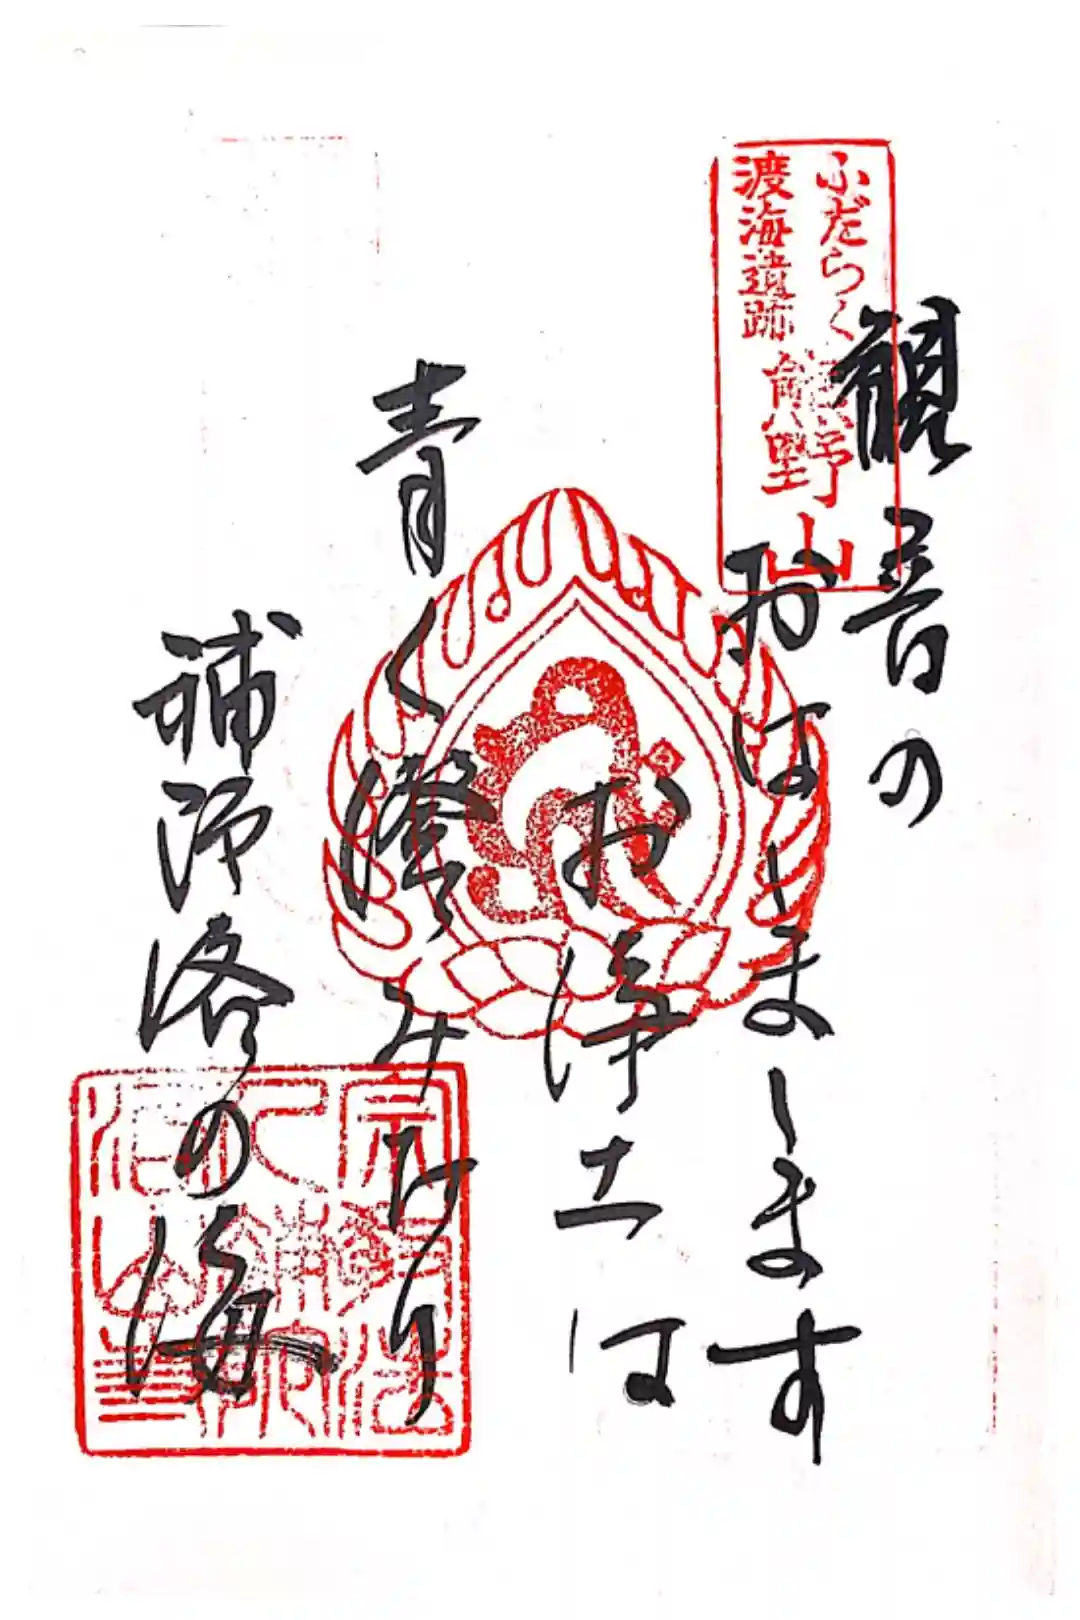 ふだらく
渡海遺跡
熊野山
観音の
おはしまします
お浄土は
青く澄みけり
補陀洛の海